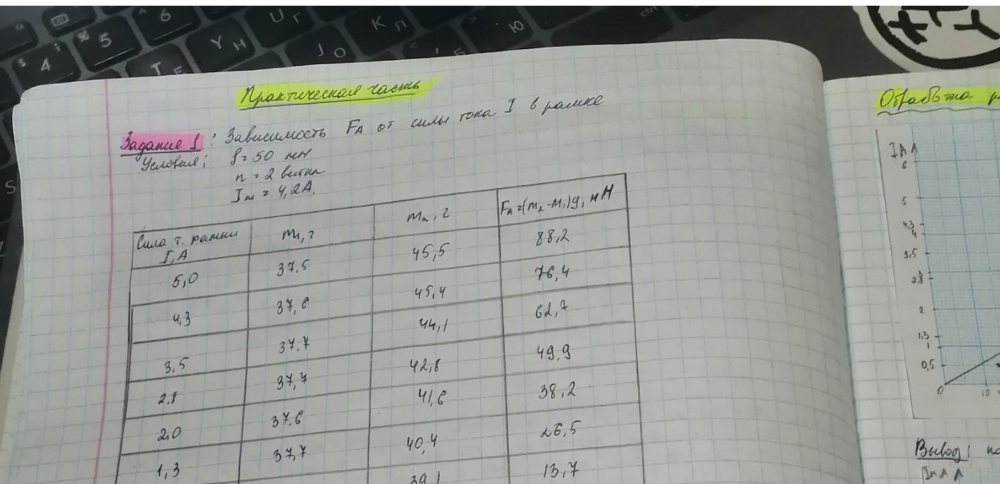 Практическая часть
Задание 1: Зависимость FA от силы тока I в рамке
Условия: l = 50 мм
n = 2 витка
Im = 4,2А.
Сила т. рамки I, А m1, г m2, г FA=(m2-m1)g, мН
5,0 37,5 45,5 88,2
4,3 37,6 45,4 76,4
3,5 37,7 44,1 62,7
2,8 37,7 42,8 49,9
2,0 37,6 41,6 38,2
1,3 37,7 40,4 26,5
39,1 13,7
Обработка
I, А
6
5
4,3
4
3,5
2,8
2
1,3
1
0,5
0 10
Вывод:
Im А